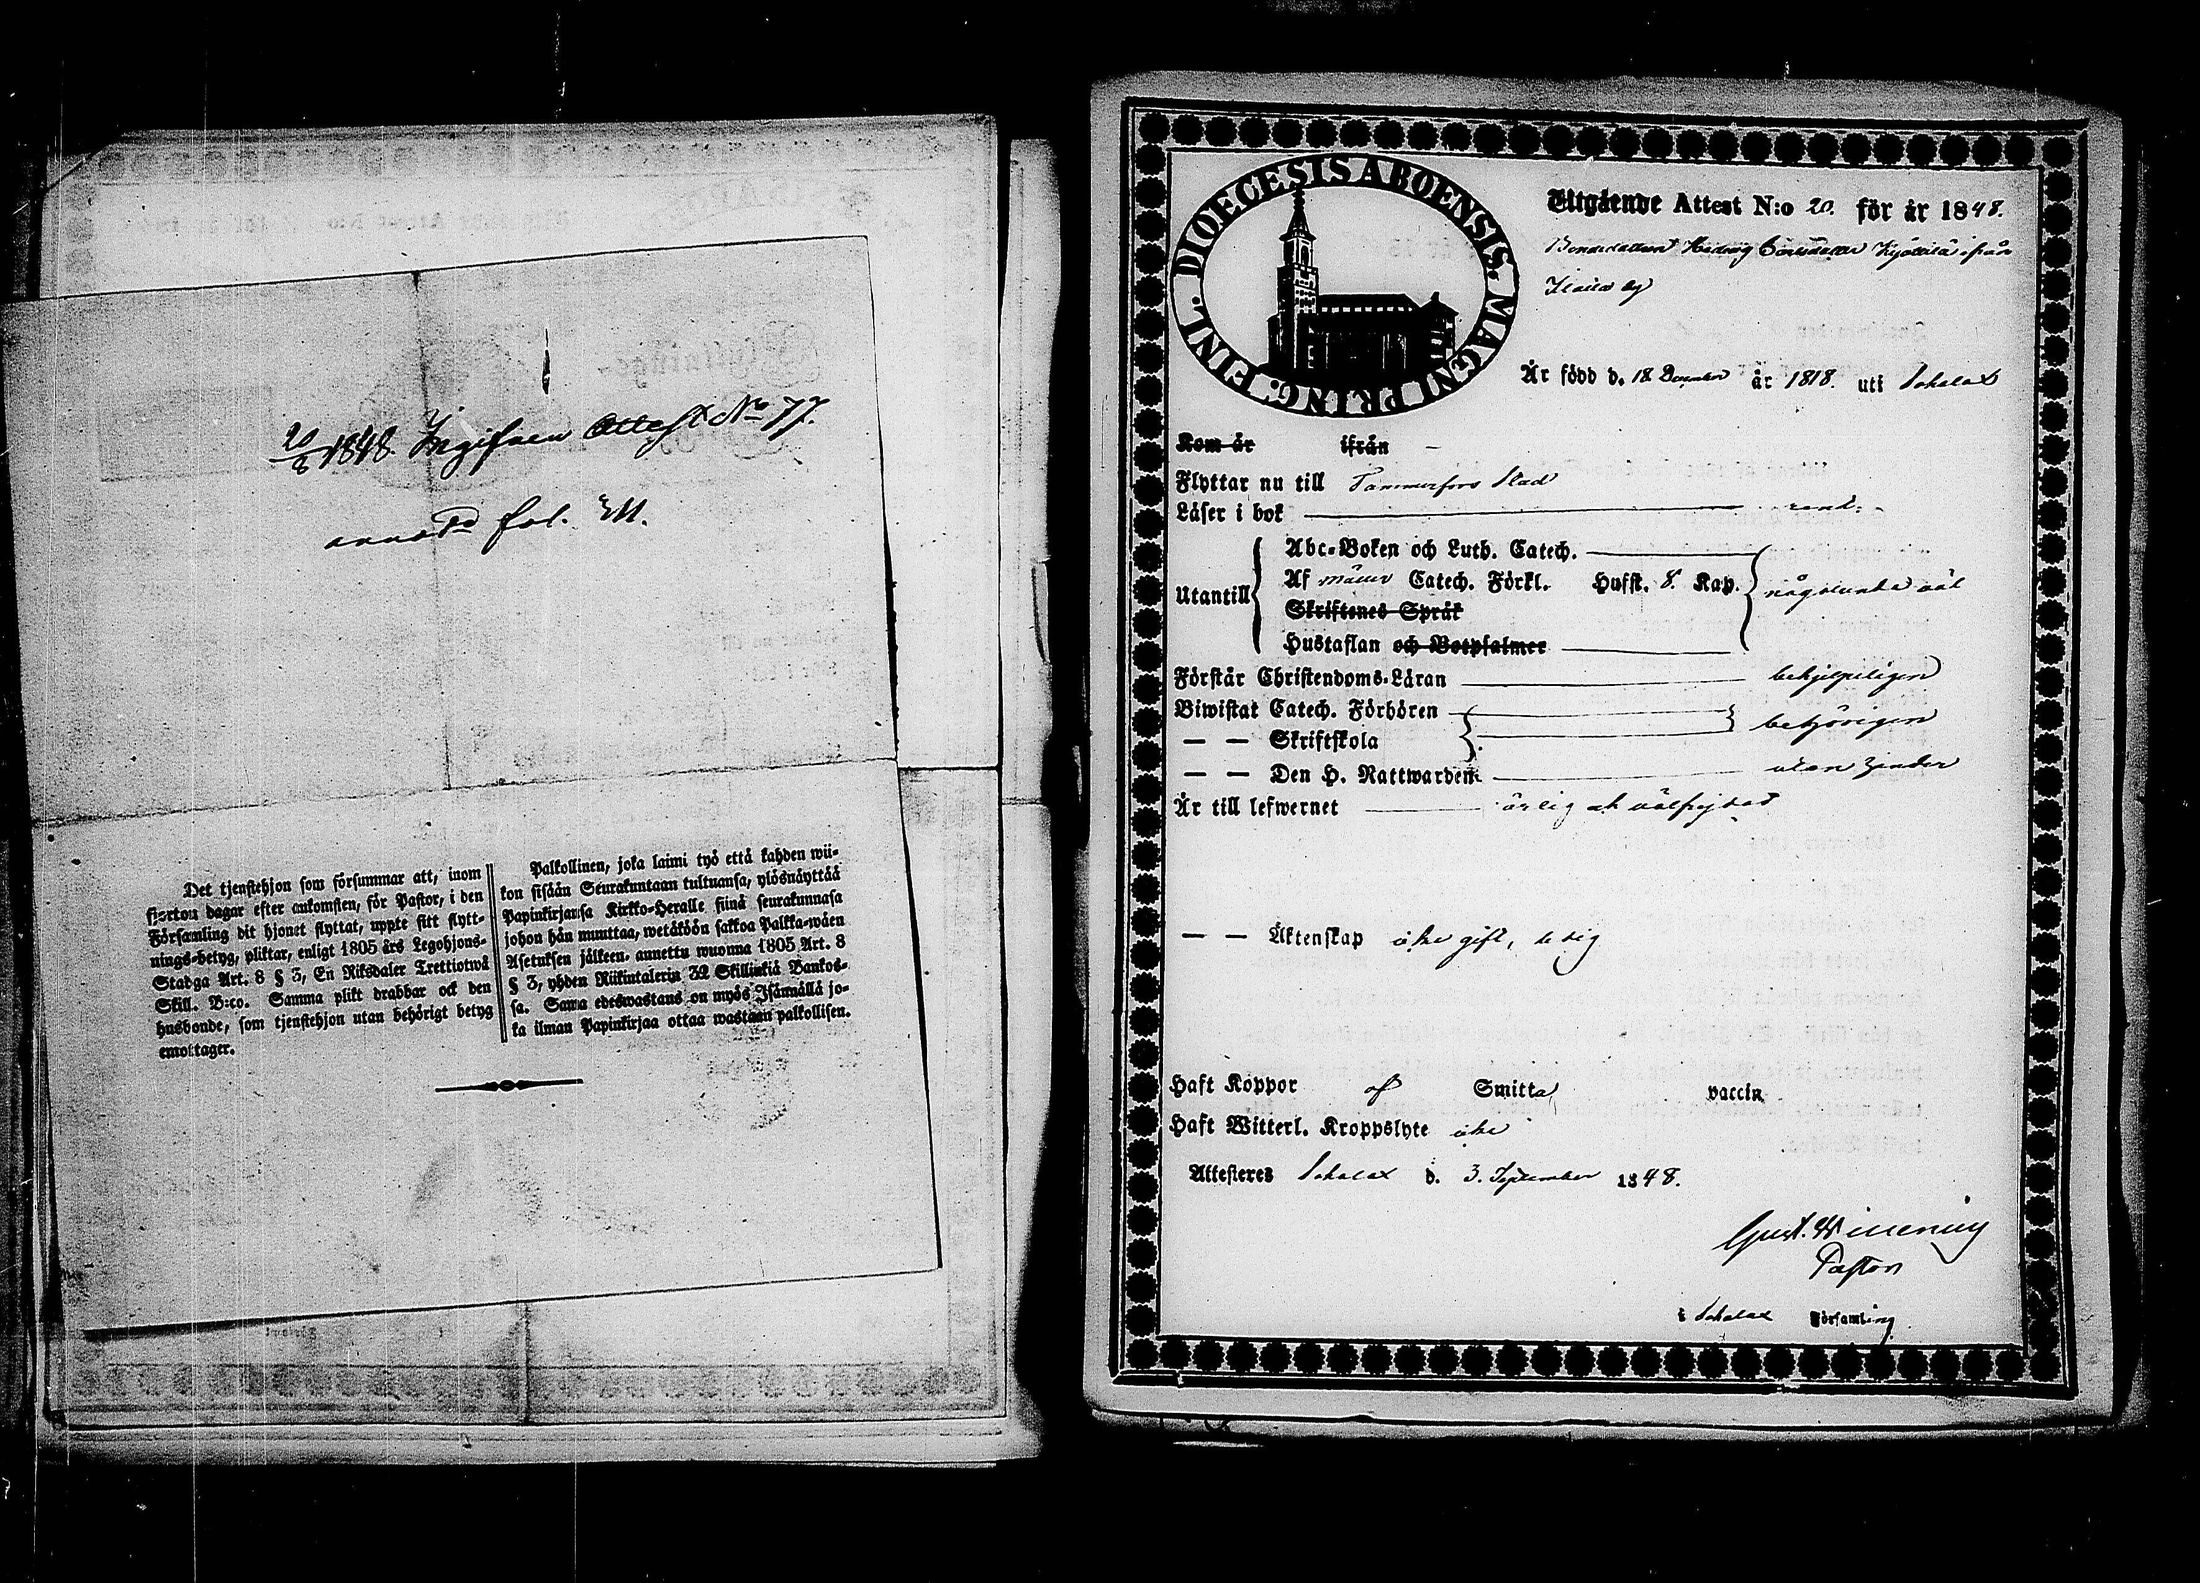 20/8 1848. Ingifven Attest No 77.
fol.
Det tjenstehjon som försummar att, inom
fjorton dagar efter ankomsten, för Pastor, i den
Församling dit hjonet flyttat, uppte sitt flytt-
nings-betyg, pliktar, enligt 1805 års Legohjons-
Stadga Art. 8 § 3, En Riksdaler Trettiotwå
Skill. B:co. Samma plikt drabbar ock den
husbonde, som tjenstehjon utan behörigt betyg
emottager.
Palkollinen, joka laimi työ että kahden wii-
kon sisään Seurakuntaan tultuansa, ylösnäyttää
Papinkirjansa Kirkko-Heralle siinä seurakunnasa
johon hän muuttaa, wetäköön sakkoa Palkka-wäen
Asetuksen jälkeen, annettu wuonna 1805 Art. 8
§ 3, yhden Riikintalerin 32 Skillinkiä Bankos-
sa. Sama edeswastaus on myös Isännällä jo-
ka ilman Papinkirjaa ottaa wastaan palkollisen.
DIOECESIS ABOENSIS. MAGNI PRING. FINL.
Utgående Attest N:o 20. för år 1848.
Bondedottren Hedvig ifrån
by
Är född d. 18 December år 1818. uti Sahalax
Kom år ifrån –
Flyttar nu till Tammerfors Stad
Läser i bok rent.
Abc-Boken och Luth. Catech.
Utantill Af Catech. Förkl. Hufst. 8. Kap. någorlunda väl
Skriftenes Språk
Hustaflan och Botpsalmer
Förstår Christendoms-Läran behjelpeligen
Biwistat Catech. Förhören behörigen
— — Skriftskola
— — Den H. Nattwarden utan hinder
Är till lefwernet ärlig och välfrejdad
— — Äktenskap icke gift, ledig
Haft Koppor af Smitta vaccin
Haft Witterl. Kroppslyte icke
Attesteres Sahalax d. 3. September 1848.
Gust.
Pastor
i Sahalax Församling.